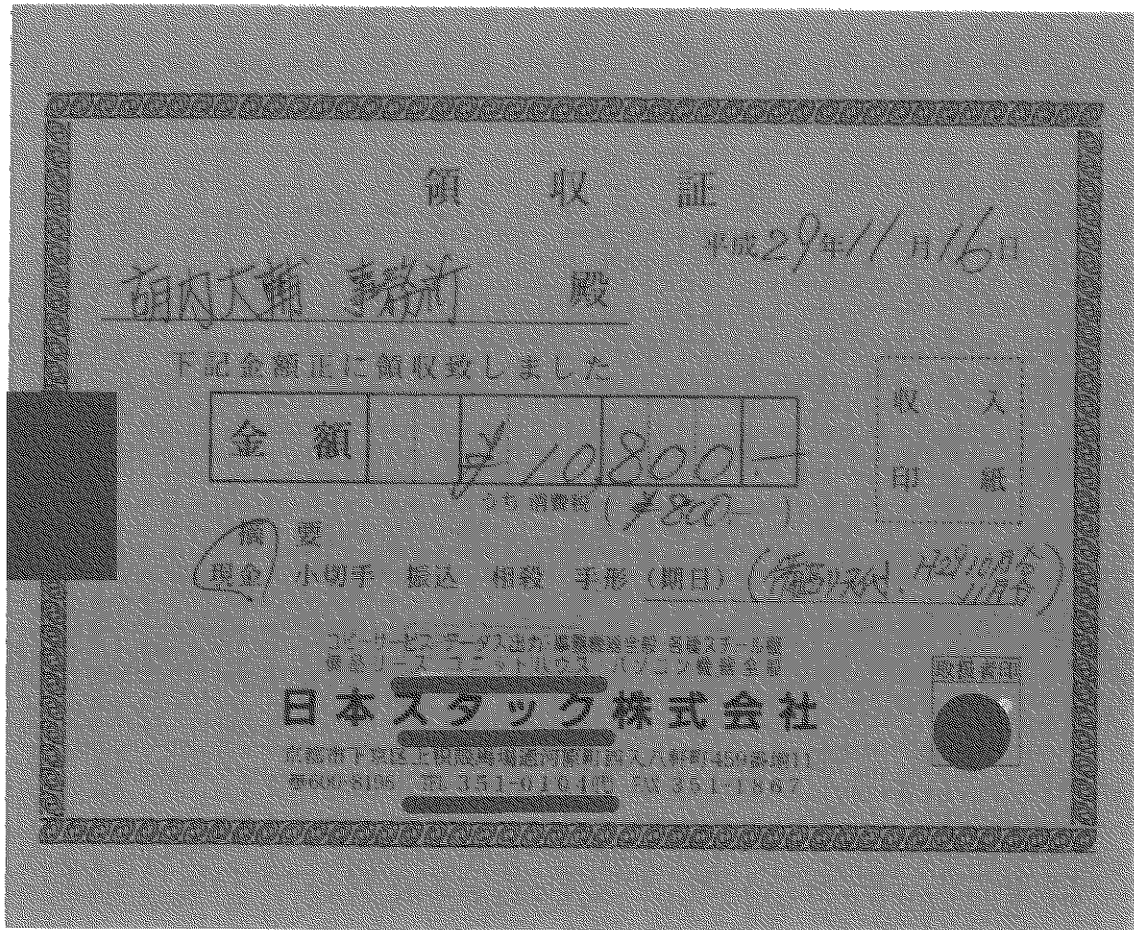 領収証
平成29年11月16日
胡内大輔 事務所 殿
下記金額正に領収致しました
収入
印紙
金額 ¥10,800-
うち消費税 (¥800-)
摘要
現金 小切手 振込 相殺 手形 (期日) (備品リース代、H29 10月分 11月分)
コピーサービス・データス出力・事務機器全般 各種スチール棚
備品リース ユニットハウス パソコン機器全般
日本スタック株式会社
取扱者印
京都市下京区上枳殻馬場通河原町西入八軒町459番地11
〒600-8196 TEL 351-0101㈹ FAX 351-1867